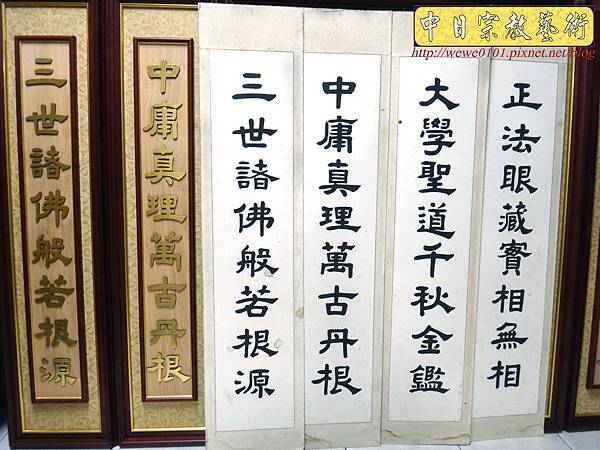 中日宗教藝術
http://wewe0101.pixnet.net/blog
正法眼藏實相無相
大學聖道千秋金鑑
中庸真理萬古丹根
三世諸佛般若根源
中庸真理萬古丹根
三世諸佛般若根源